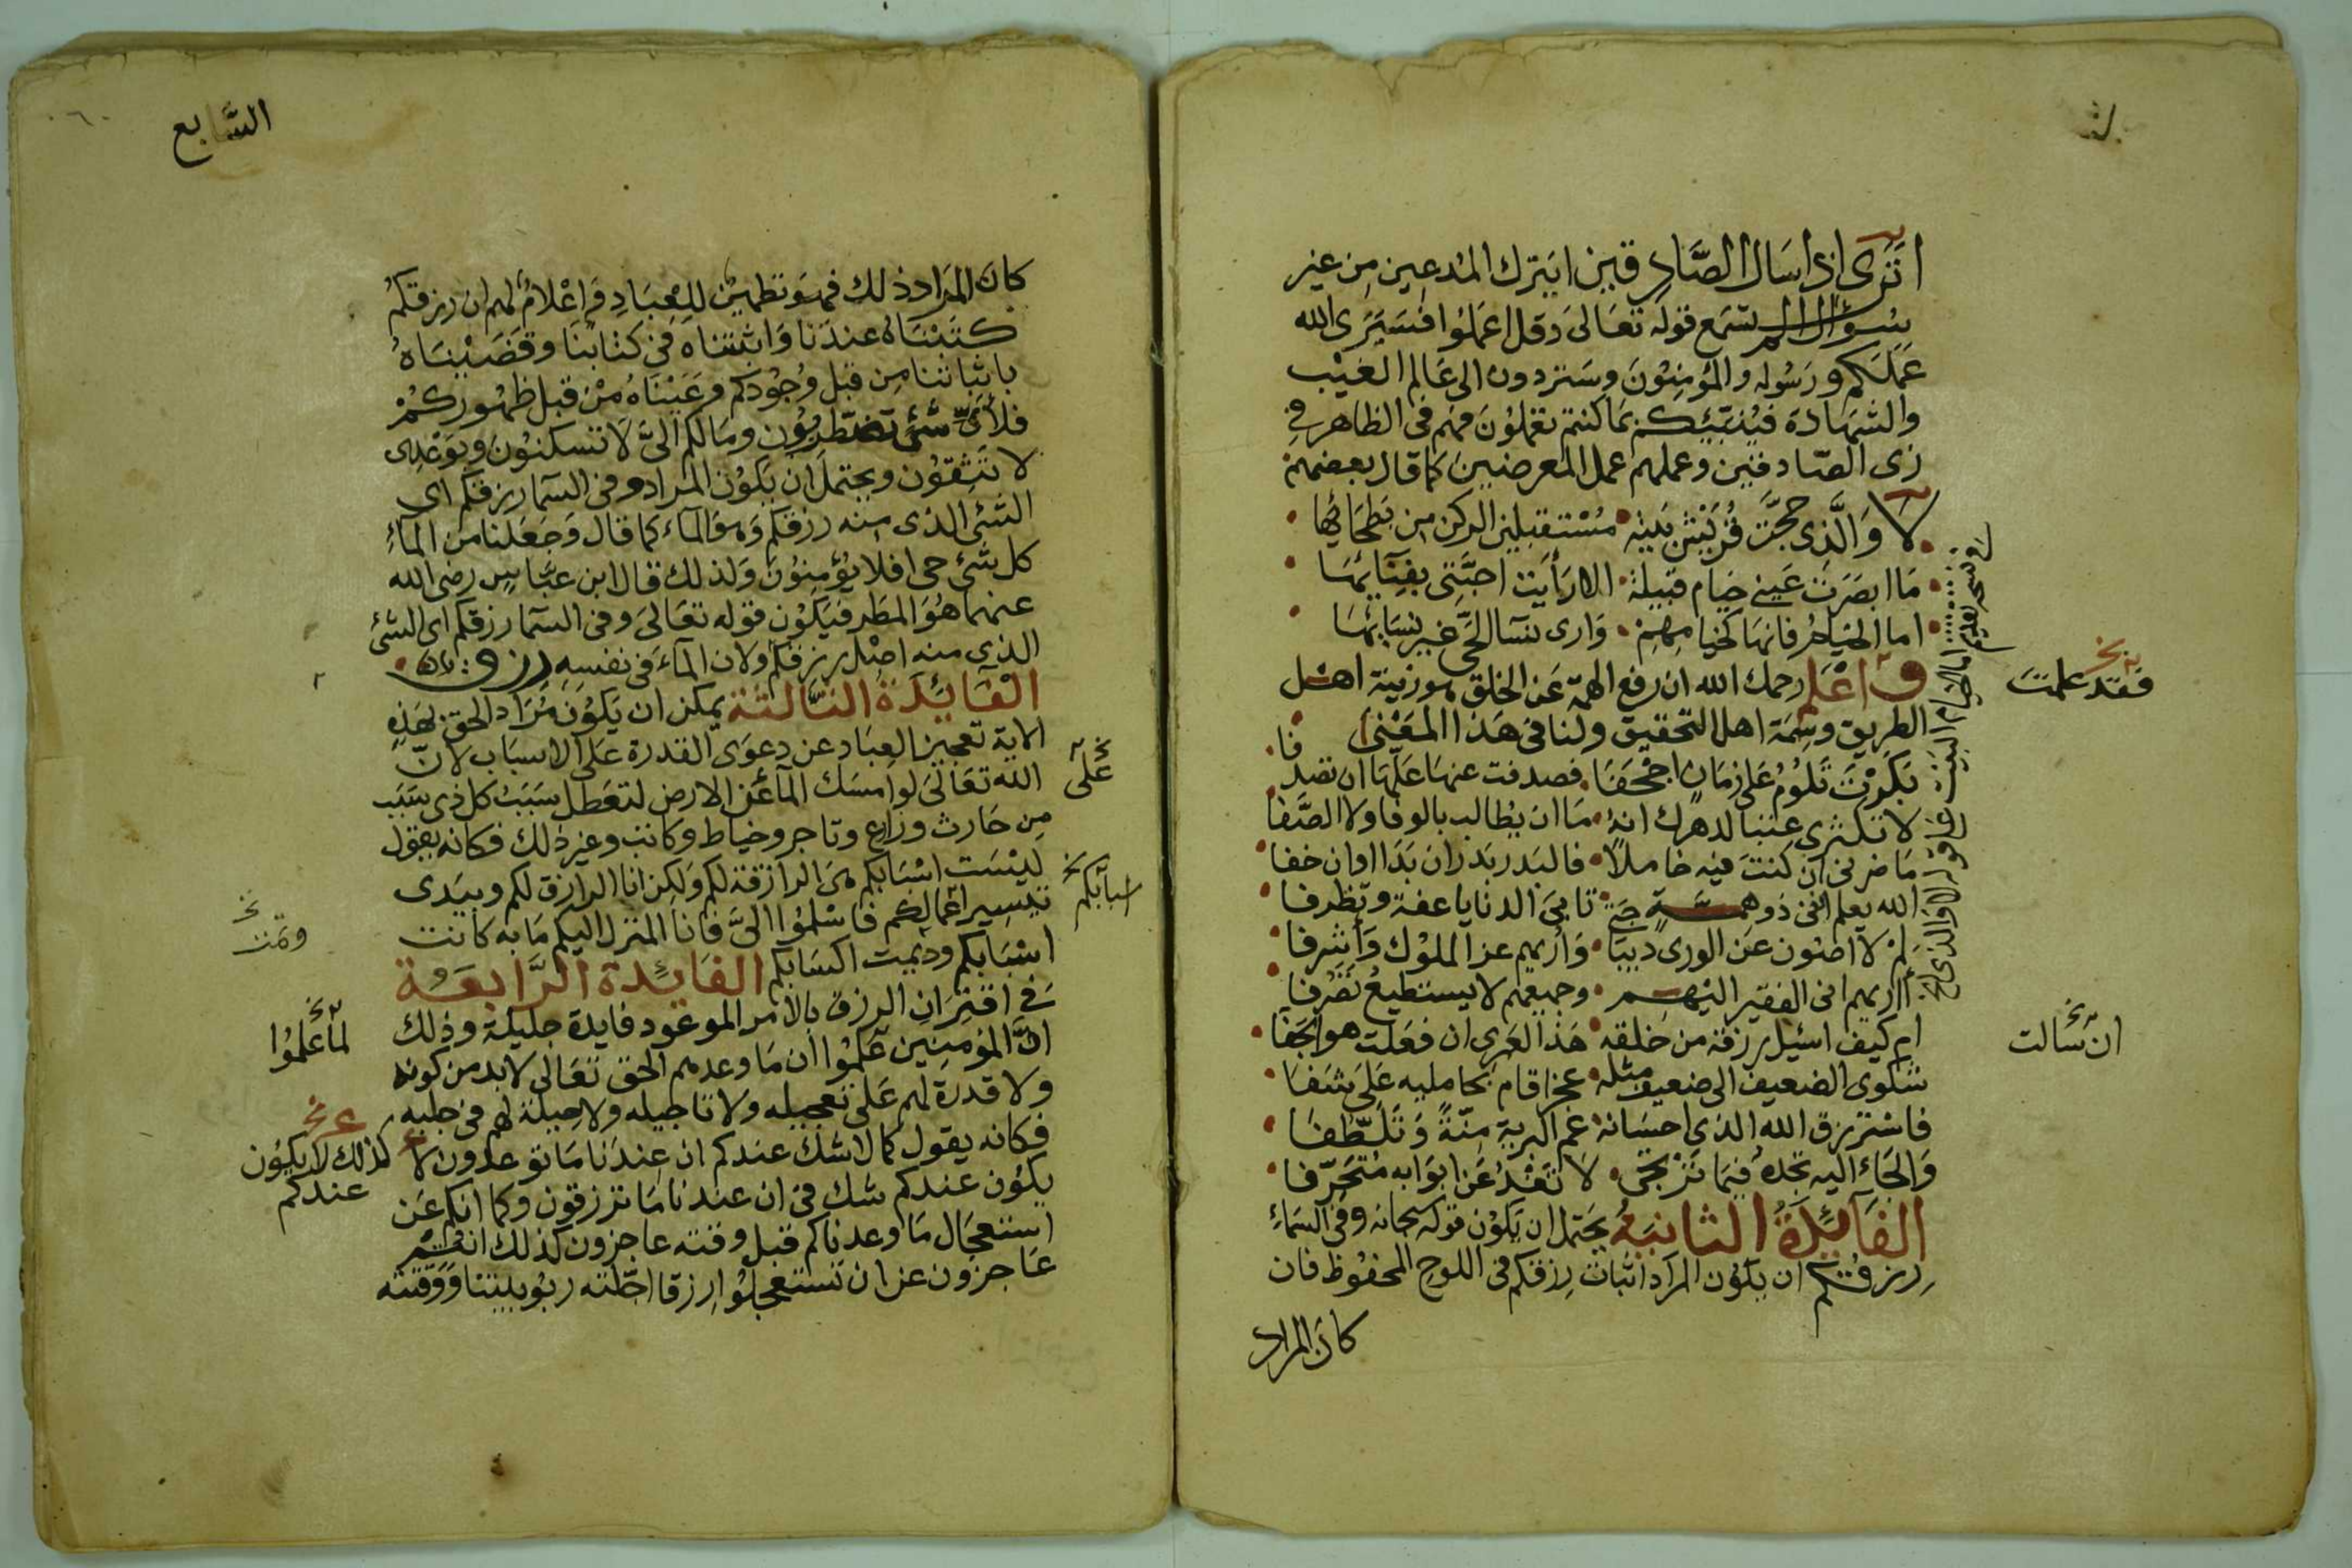 اتَرَى اذا سَال الصَّادِقين ايترك المدعين مِن غير
سُؤال الم تسمع قوله تعَالىَ وقل اعمَلوُا فسَيَرَى الله
عَمَلكم ورَسُوله والمؤمِنوُنَ وسَتردون الى عَالم الغيْب
والشهادة فيُنبّئكم بمَا كنتم تعملوُنَ فهم في الظاهر في
زى الصَّادقين وعملهم عمل المعرضين كما قال بعضهم
لا وَالَّذى حجَّت قُرَيْش بَيته مُسْتقبلين الركن من بَطحَائِها
مَا ابصَرَت عَيني خيام قبيلة الا رَأيت احبَّتى بفِنَائِهَا
اما الخيام فانهَا كخيامِهِمْ وَارى نسَآ الحَّى غير نِسَائهَا
فقد علمت
واعْلم رحمك الله ان رفع الهمّة عَن الخلق هو زينة اهْل
الطريق وسِمَة اهل التحقيق ولنا في هَذا المعَنى
بَكَرتْ تَلوُمُ عَلى زمَان اجْحَفَا فصدفت عنهَا عَلّهَا ان تصدفا
لا تكثرى عتبا لدهرك انهُ مَا ان يُطالب بالوفا ولا الصَّفا
مَا ضرنى ان كنتَ فيه خاملاً فالبَدر بَدر ان بَدَا او ان خفا
الله يعلم اننى ذو همَّة تابىَ الدنايا عفة وتظرفا
لِمْ لا اصُون عَن الورى ديباجتى وَاريهم عز الملوُك وَاشرفا
أأريهم انى الفقير اليهم وجميعهم لا يستطيعُ تَصَرفا
ام كيف اسئل رزقهُ من خلقه هَذا لعَمرى ان فعَلت هو الجَفا
ان سَالت
شكوى الضعيف الى ضعيف مثله عجز اقام بحامليه عَلىَ شفَا
فاسْترزق الله الذى احسَانه عم البرية مِنّةً وَتَلطّفَا
وَالجَاء اليه تجدهُ فيمَا تَرْتجَى لا تَعْدُ عَن ابوَابه مُتَحَرّفا
الفَائِدَةُ الثانيَةُ يحَتمل ان يَكوُن قوله سبحانه وفي السَّماءِ
رِزقُكم ان يكوُن المرَاد اثبات رِزقكم في اللوحِ المحفوُظ فان
كانَ المراد
السَّابع
كانَ المَرَاد ذلك فهوَ تطمين للعِبَادِ وَاعْلامٌ لهم ان رزقكمُ
كتَبْنَاهُ عندَنا وَاثبتناه في كتابنَا وقضَيْنَاهُ
باثباتنا من قبْل وُجُودكم وعَيّنَاهُ مِنْ قبل ظهُوركُمْ
فلأىّ شَئ تضطربوُن ومَالكم الىَّ لاَ تسكنوُنَ وبوَعْدِى
لا تَثِقوُن ويحتمل ان يَكوُن المرَاد وفي السَّمآ رِزقكم اى
الشئ الذى منه رزقكم وَهوَ الماء كمَا قال وَجَعَلنا من المآءِ
كل شَئ حى افلا يؤمِنوُنَ وَلذلك قال ابن عبَّاس رضى الله
عنهما هُوَ المطر فيَكوُن قوله تعَالىَ وفي السمَآ رزقكم اى الشَئ
الذى منه اصْل رزقكم ولان المآءَ في نفسِهِ رزق
الفَائِدَةُ الثَّالثَة يمكن ان يَكوُنَ مُرَاد الحق بهَذِهِ
الاية تعجيز العبَاد عن دعوَى القدرة عَلى الاسبَاب لانّ
عَلى
الله تعَالىَ لو امسَك المآء عَن الارض لتعَطل سَبَبُ كل ذى سَبَب
مِن حَارث وزارعٍ وتاجر وخياط وكاتب وغير ذلك فكانه يقول
ليْسَت اسْبَابكم هىَ الرازقة لكم وَلكِن انا الرازق لكم وبيَدى
اسبَابكم
تيسِير اعمالكم فاسْلموُا الىَّ فانا المنزل اليكم مَا به كانت
اسْبَابكم ودَيمت اكسَابكم الفَائِدة الرَّابعَة
وتمّت
في اقتِرَانِ الرزق بالامر الموعُود فايدة جليلة وذلك
انَّ المؤمنِين عَلموُا ان مَا وعدهم الحق تعَالى لابد من كونه
لمّا عَلموُا
ولا قدرة لهم عَلى تعجيله ولا تاجيله ولا حِيلة لهم في جلبه
فكانه يقول كما لا شَك عندكم ان عندَنا مَا توعدون
كذلك لا يكوُن
عندكم
يكوُن عندكم شك فى ان عندنا مَا ترزقون وكما انكم عَن
استعجَال مَا وعدناكم قبل وقته عاجزون كذلك انتم
عَاجزُون عن ان تستعجلوُا رِزقا اجّلته ربُوبيتنا وَوَقّتته